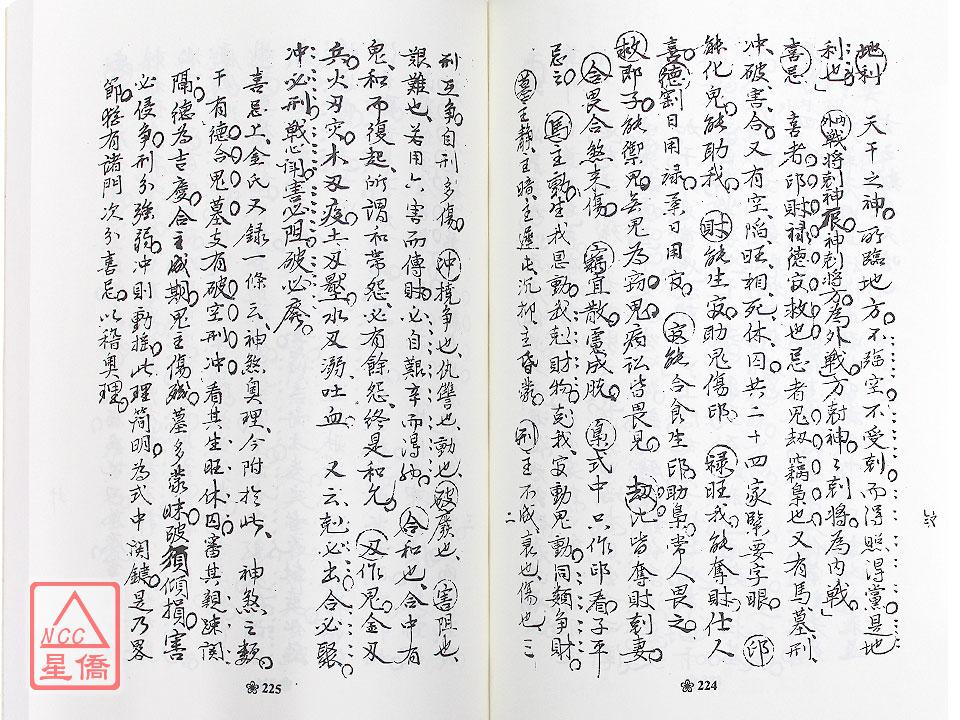 地利 天干之神所臨地方不臨空不受剋而得照得黨是地
利也 內戰將剋神神剋將方為外戰方剋神神剋將為內戰
喜忌 喜者印財祿德寂救也忌者鬼劫竊梟也又有馬墓刑
冲破害合又有空陷旺相死休囚共二十四家緊要字眼 印
能化鬼能助我 財能生寂助鬼傷印 祿旺我能奪財仕人
喜德劉日用祿業日用寂 寂能合食生印助梟常人畏之
救即子能禦鬼無鬼為竊鬼病訟皆畏見 劫比皆奪財剋妻
合畏合煞来傷 竊宜散慮成脫 梟式中只作印看子平
忌之 馬主動生我恩動我剋財物剋我寂動鬼動同類爭財
墓主靜主暗主遲屯沉抑主昏蒙 刑主不成衰也傷也三
二
224
刑互争自刑多傷 冲境争也仇讐也動也 破廢也 害阻也
艱難也若用六害而傳財必自艱辛而得 合和也合中有
鬼和而復起所謂和帶怨必有餘怨終是和凢 刃作鬼金刃
兵火刃灾木刃疫土刃壓水刃溺吐血 又云剋必出合必聚
冲必刑戰必鬥害必阻破必廢
喜忌上金氏又錄一條云神煞奥理今附於此 神煞之類
干有德合鬼墓支有破空刑冲看其生旺休囚審其親踈関
隔德為吉慶合主成期鬼主傷殘墓多蒙昧破須傾損害
必侵争刑分強弱冲則動搖此理簡明為式中関鑰是乃畧
節陞有諸門次分喜忌以稽奥理
225
NCC
星僑